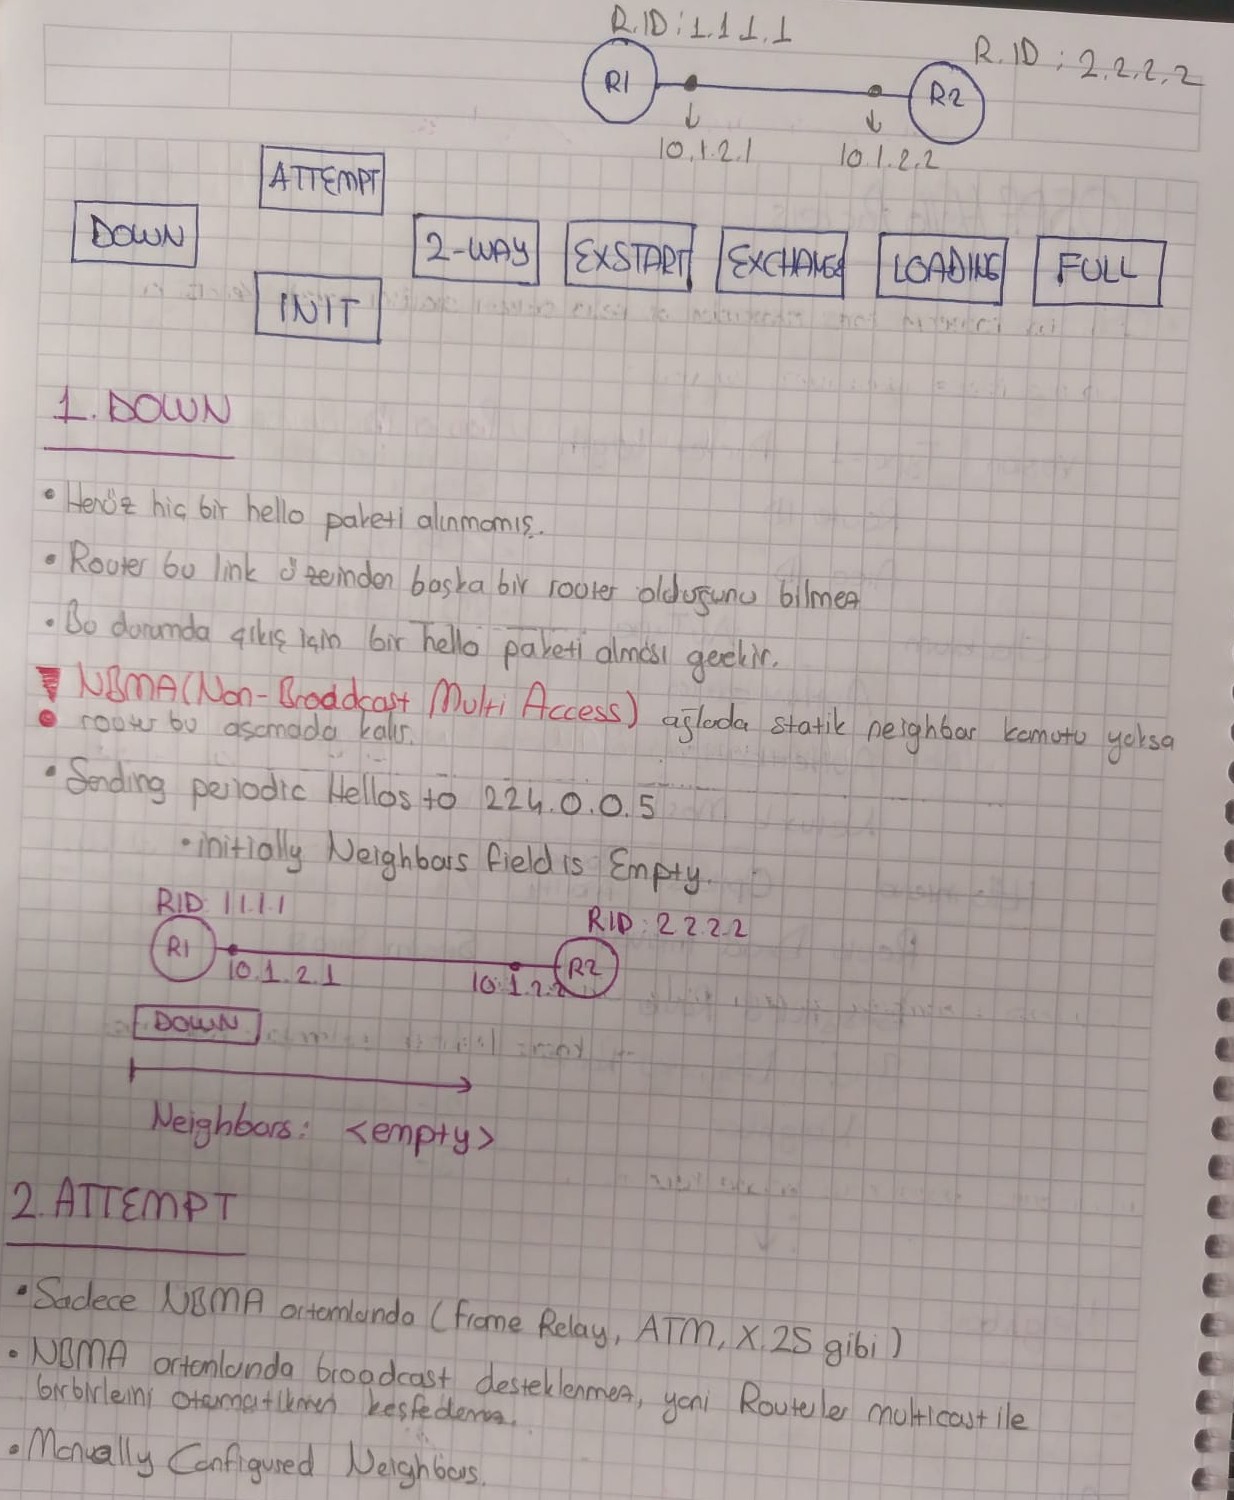 R.ID : 1.1.1.1
R.ID : 2.2.2.2
R1
R2
10.1.2.1
10.1.2.2
ATTEMPT
DOWN
2-WAY
EXSTART
EXCHANGE
LOADING
FULL
INIT
1. DOWN
• Henüz hiç bir hello paketi alınmamış.
• Router bu link üzeinden başka bir router olduğunu bilmez
• Bu durumda çıkış için bir hello paketi alması gerekir.
NBMA (Non-Broadcast Multi Access) ağlada statik neighbor komutu yoksa
router bu aşamada kalır.
• Sending periodic Hellos to 224.0.0.5
• initially Neighbors field is Empty.
RID: 1 1.1.1
RID: 2 2.2.2
R1
R2
10.1.2.1
10.1.2.2
DOWN
Neighbors: <empty>
2. ATTEMPT
• Sadece NBMA ortamlarında (Frame Relay, ATM, X.25 gibi)
• NBMA ortamlarında broadcast desteklenmez, yani Routerler multicast ile
birbirlerini otomatikmen keşfedemez.
• Manually Configured Neighbors.